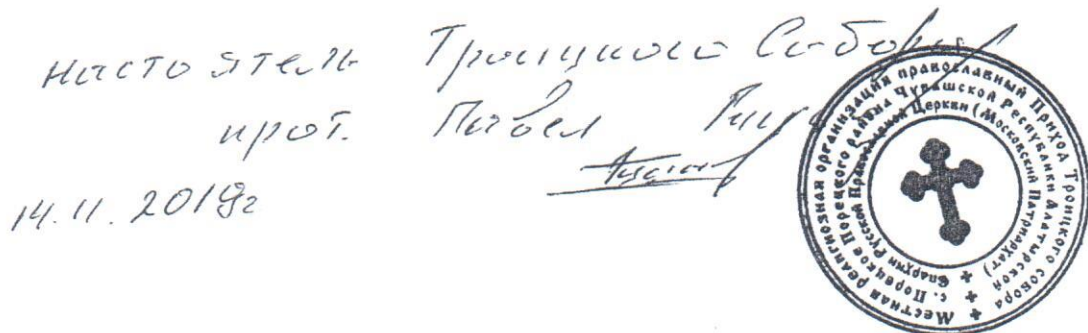 настоятель Троицкого Собора
прот. Павел
14.11.2019г
Местная религиозная организация православный Приход Троицкого собора
с. Порецкое Порецкого района Чувашской Республики Алатырской
Епархии Русской Православной Церкви (Московский Патриархат)